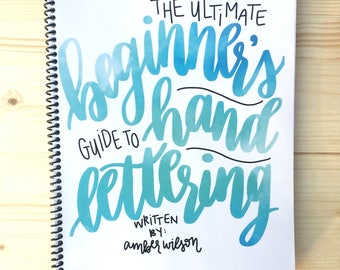 THE ULTIMATE
beginner's
GUIDE TO hand
lettering
WRITTEN
BY:
amber wilson